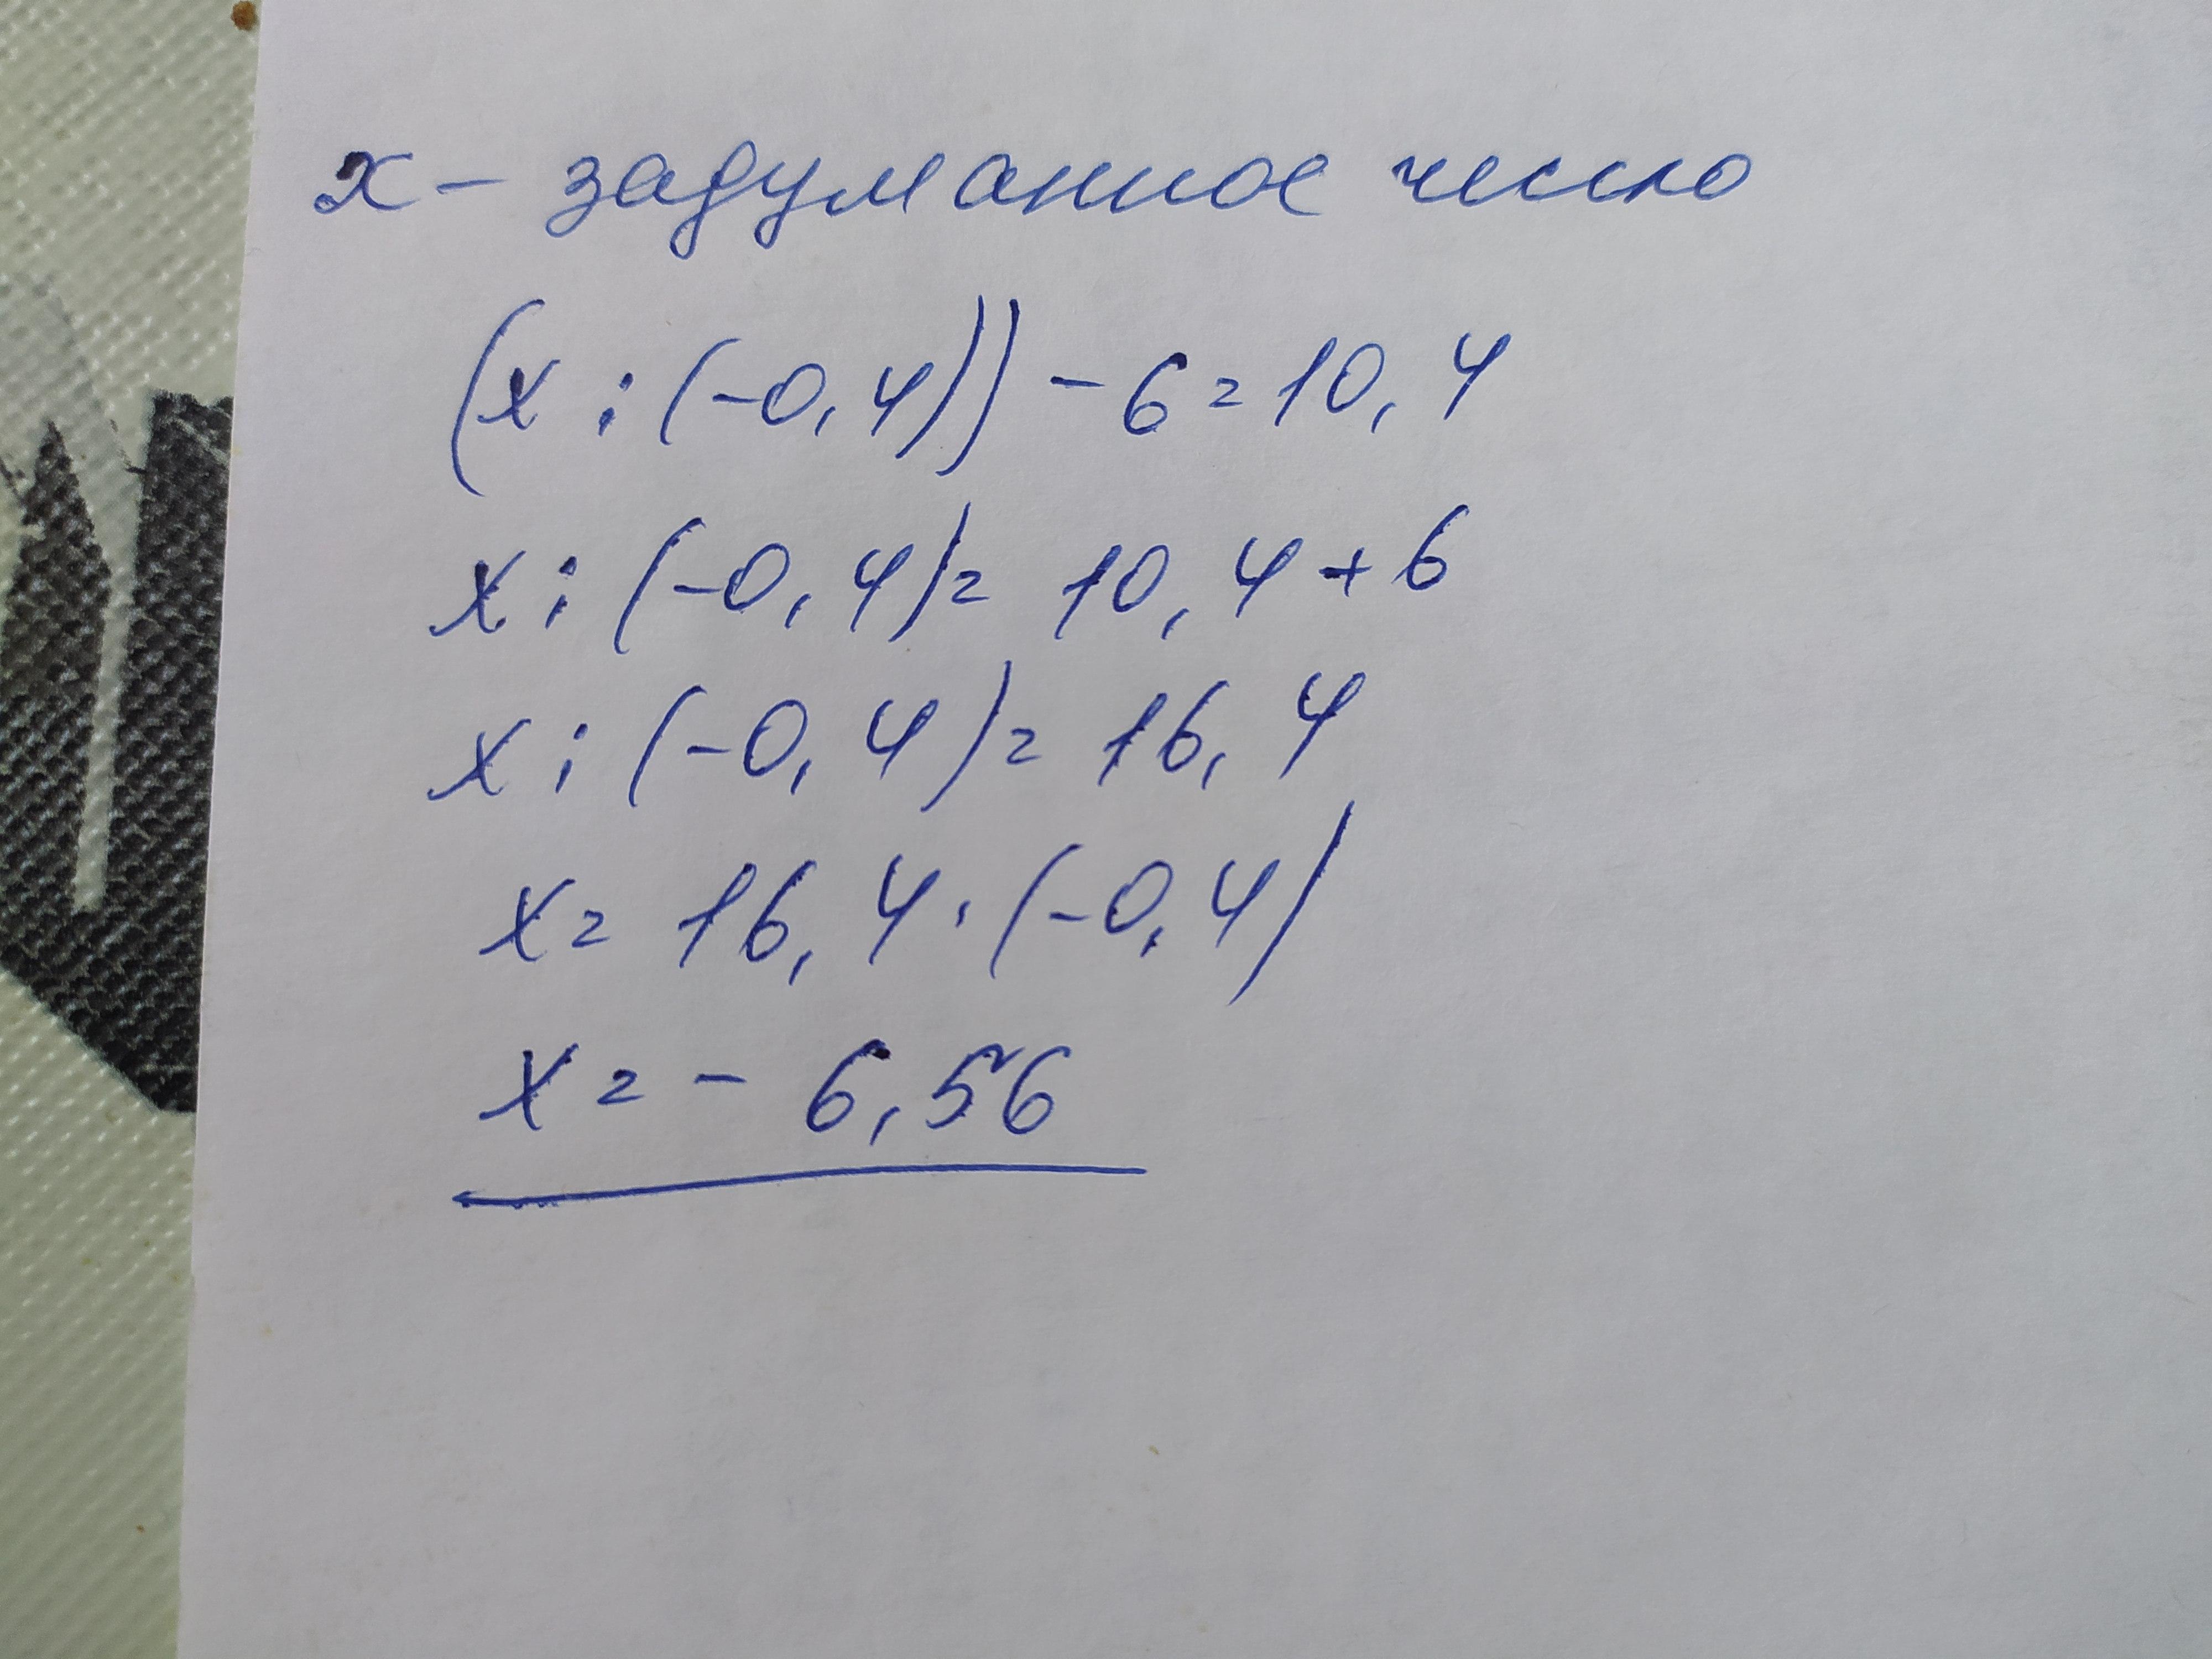 x – задуманное число
(x : (-0,4)) - 6 = 10,4
x : (-0,4) = 10,4 + 6
x : (-0,4) = 16,4
x = 16,4 · (-0,4)
x = - 6,56